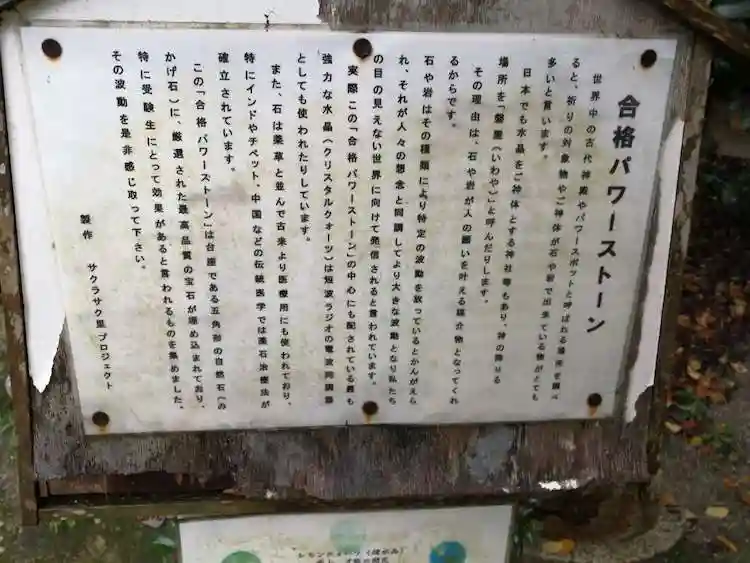 合格パワーストーン
世界中の古代神殿やパワースポットと呼ばれる場所を調べ
ると、祈りの対象物やご神体が石や岩で出来ている物がとても
多いと言います。
日本でも水晶をご神体とする神社等もあり、神の降りる
場所を「磐座(いわや)」と呼んだりします。
その理由は、石や岩が人の願いを叶える媒介物となってくれ
るからです。
石や岩はその種類により特定の波動を放っているとかんがえら
れ、それが人々の想念と同調してより大きな波動となり私たち
の目の見えない世界に向けて発信されると言われています。
実際この「合格パワーストーン」の中心にも配されている最も
強力な水晶(クリスタルクォーツ)は短波ラジオの電波同調器
としても使われたりしています。
また、石は薬草と並んで古来より医療用にも使われており、
特にインドやチベット、中国などの伝統医学では薬石治療法が
確立されています。
この「合格パワーストーン」は台座である五角形の自然石(み
かげ石)に、厳選された最高品質の宝石が埋め込まれており、
特に受験生にとって効果があると言われるものを集めました。
その波動を是非感じ取って下さい。
製作 サクラサク里プロジェクト